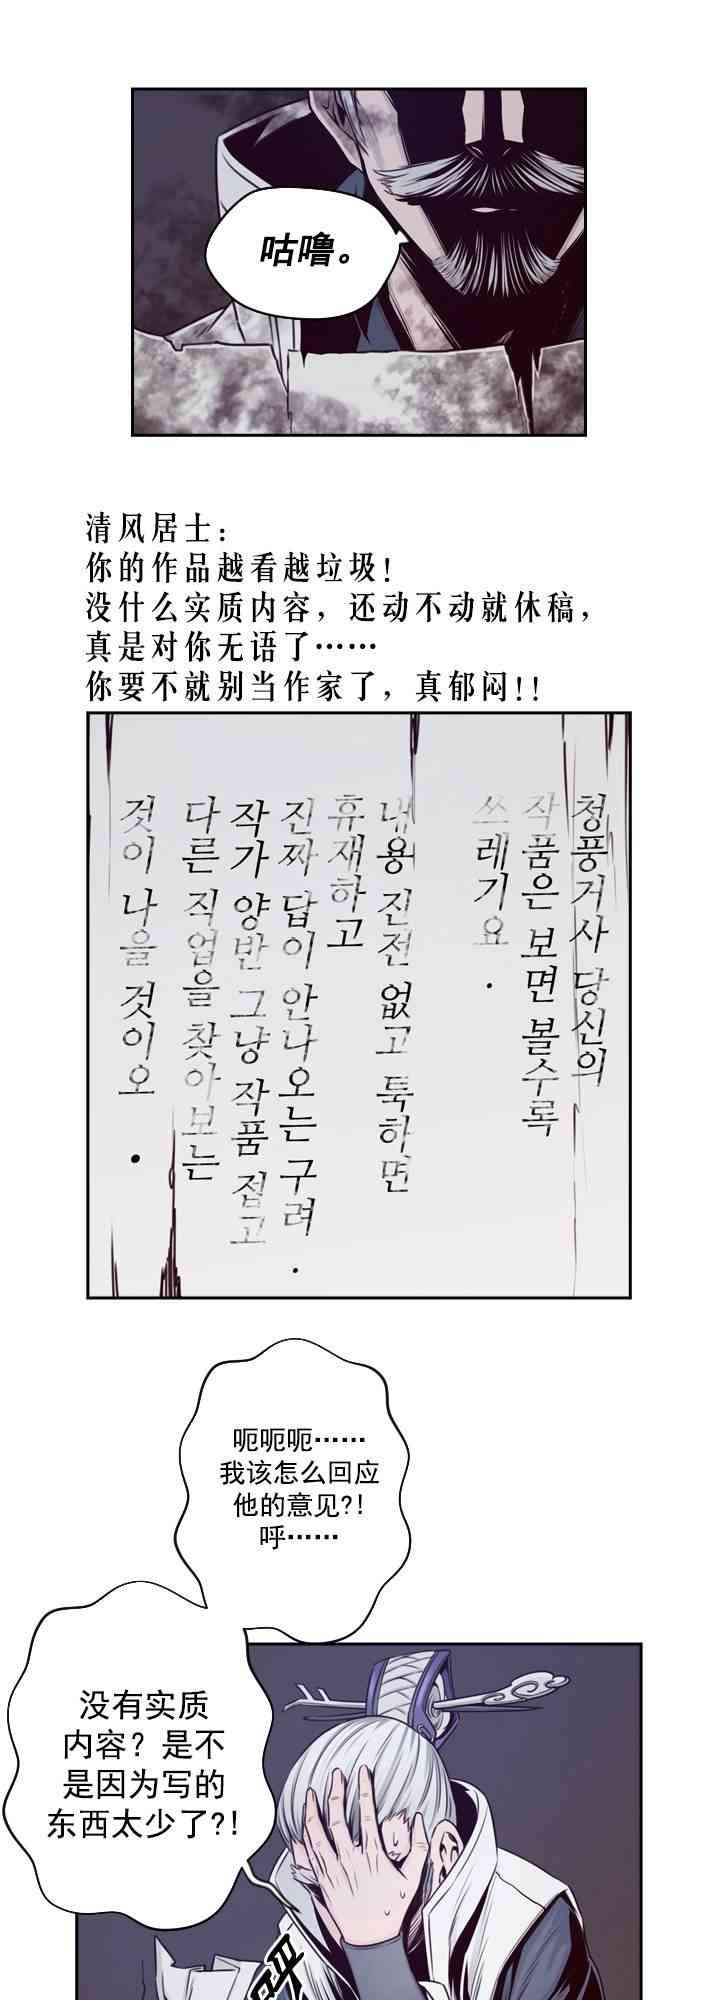 咕噜。
清风居士:
你的作品越看越垃圾!
没什么实质内容，还动不动就休稿，
真是对你无语了……
你要不就别当作家了，真郁闷!!
청풍거사 당신의
작품은 보면 볼수록
쓰레기요.
내용 진전 없고 툭하면
휴재하고
진짜 답이 안나오는구려.
작가 양반 그냥 작품 접고
다른 직업을 찾아보는
것이 나을 것이오.
呃呃呃……
我该怎么回应
他的意见?!
呼……
没有实质
内容？是不
是因为写的
东西太少了?!